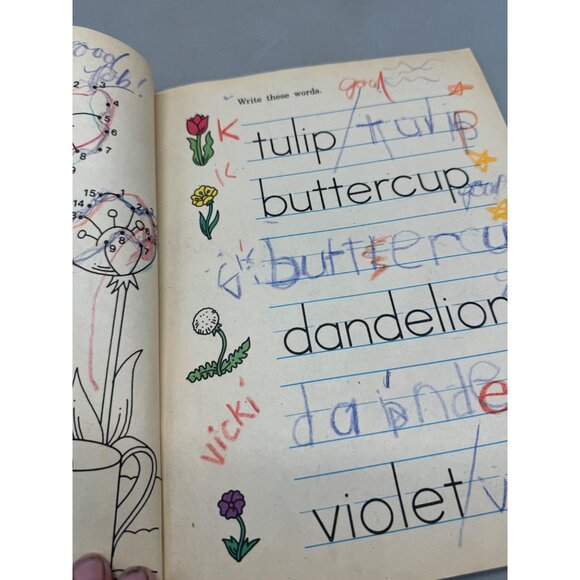 good
Job!
2 3
4
5
6
7
9
15 1
14 2
3
9 8 7
Write these words.
good
K
tulip / tulip
K
buttercup
good
buttercu
dandelion
vicki
violet / v